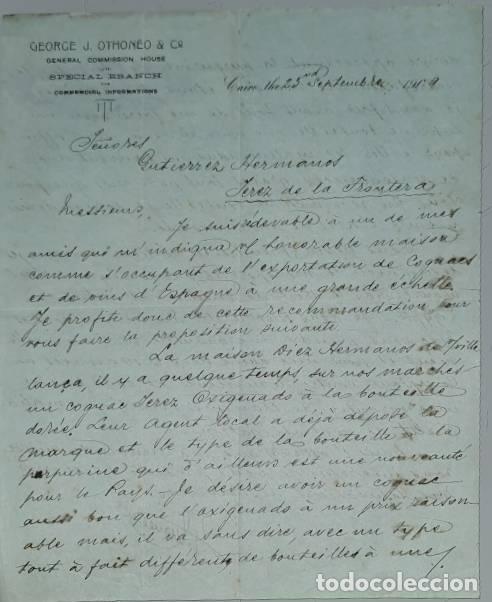 GEORGE J. OTHONÉO & Cº
GENERAL COMMISSION HOUSE
SPECIAL BRANCH
FOR
COMMERCIAL INFORMATIONS
Cairo, the 23rd Septembre 1909
Señores
Gutierrez Hermanos
Jerez de la Frontera
Messieurs,
Je suis rédevable à un de mes
amis qui m'indiqua honorable maison
comme s'occupant de l'exportation de Cognacs
et de vins d'Espagne à une grande échelle
Je profite donc de cette recommandation pour
vous faire la proposition suivante.
La maison Diez Hermanos de
lança, il y a quelque temps, sur nos marchés
un cognac Jerez Oxigenado à la bouteille
dorée. Leur Agent local a déjà déposé la
marque et le type de la bouteille à la
purpurine qui d'ailleurs est une nouveauté
pour le Pays. - Je désire avoir un cognac
aussi bon que l'oxigenado à un prix raison-
able mais, il va sans dire, avec un type
tout à fait différent de bouteilles à une
todocoleccion.net